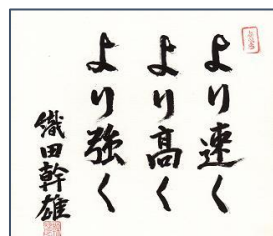 より速く
より高く
より強く
織田幹雄